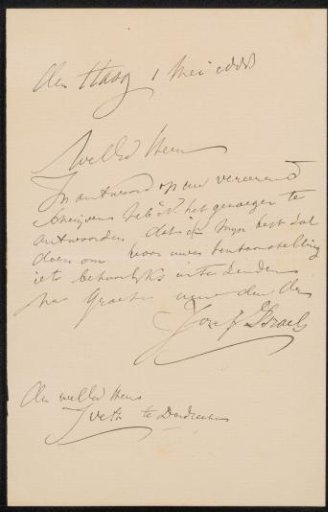 den Haag 1 Mei 1888
WelEd Heer
In antwoord op uw vereerend
schrijven heb ik het genoegen te
antwoorden dat ik mijn best zal
doen om voor uwe tentoonstelling
iets behoorlijks in te zenden
Met Groeten uw dw dr
Jozef Israels
den welEd Heer
Veth te Dordrecht